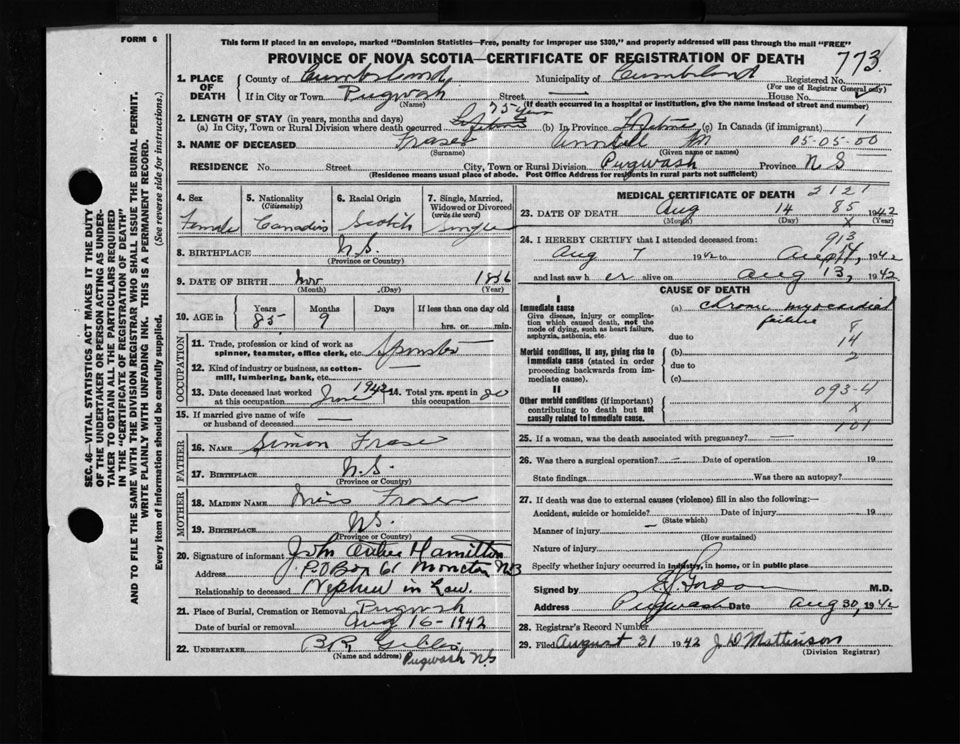 FORM 6
This form if placed in an envelope, marked "Dominion Statistics—Free, penalty for improper use $300," and properly addressed will pass through the mail "FREE"
PROVINCE OF NOVA SCOTIA—CERTIFICATE OF REGISTRATION OF DEATH 773
1. PLACE OF DEATH County of Cumberland Municipality of Cumberland Registered No.
(For use of Registrar General only)
If in City or Town Pugwash Street — House No.
(Name) (If death occurred in a hospital or institution, give the name instead of street and number)
2. LENGTH OF STAY (in years, months and days) 75 Years
(a) In City, Town or Rural Division where death occurred Lifetime (b) In Province Lifetime (c) In Canada (if immigrant) 1
3. NAME OF DECEASED Fraser M 05-05-00
(Surname) (Given name or names)
RESIDENCE No. Street City, Town or Rural Division Pugwash Province N S
(Residence means usual place of abode. Post Office Address for residents in rural parts not sufficient)
4. Sex Female
5. Nationality (Citizenship) Canadian
6. Racial Origin Scotch
7. Single, Married, Widowed or Divorced (write the word) Single
8. BIRTHPLACE N.S.
(Province or Country)
9. DATE OF BIRTH Nov 1856
(Month) (Day) (Year)
10. AGE in Years 85 Months 9 Days If less than one day old hrs. or min.
OCCUPATION
11. Trade, profession or kind of work as spinner, teamster, office clerk, etc. Spinster
12. Kind of industry or business, as cotton-mill, lumbering, bank, etc. —
13. Date deceased last worked at this occupation June 1942 14. Total yrs. spent in this occupation 20
15. If married give name of wife or husband of deceased
FATHER
16. NAME Simon Fraser
17. BIRTHPLACE N.S.
(Province or Country)
MOTHER
18. MAIDEN NAME Miss Fraser
19. BIRTHPLACE NS.
(Province or Country)
20. Signature of informant John Hamilton
Address P.O Box 61 Moncton NB
Relationship to deceased Nephew in Law.
21. Place of Burial, Cremation or Removal Pugwash
Date of burial or removal Aug 16-1942
22. UNDERTAKER B R
(Name and address) Pugwash NS
MEDICAL CERTIFICATE OF DEATH 2121
23. DATE OF DEATH Aug 14 85 1942
(Month) (Day) x (Year)
24. I HEREBY CERTIFY that I attended deceased from: 913
Aug 7 1942 to Aug 14, 1942
and last saw her alive on Aug 13, 1942
CAUSE OF DEATH
I
Immediate cause (a) chronic myocardial failure
Give disease, injury or complication which caused death, not the mode of dying, such as heart failure, asphyxia, asthenia, etc.
8
due to 14
Morbid conditions, if any, giving rise to immediate cause (stated in order proceeding backwards from immediate cause).
(b) 2
due to
(c)
II
Other morbid conditions (if important) contributing to death but not causally related to immediate cause.
093-4
x
101
25. If a woman, was the death associated with pregnancy? —
26. Was there a surgical operation? — Date of operation 19
State findings Was there an autopsy?
27. If death was due to external causes (violence) fill in also the following:—
Accident, suicide or homicide? Date of injury 19
(State which)
Manner of injury —
(How sustained)
Nature of injury
Specify whether injury occurred in industry, in home, or in public place
Signed by M.D.
Address Pugwash Date Aug 30, 1942
28. Registrar's Record Number
29. Filed August 31 1942 J D Mattinson
(Division Registrar)
SEC. 46—VITAL STATISTICS ACT MAKES IT THE DUTY
OF THE UNDERTAKER OR PERSON ACTING AS UNDER-
TAKER TO OBTAIN ALL THE PARTICULARS REQUIRED
IN THE "CERTIFICATE OF REGISTRATION OF DEATH"
AND TO FILE THE SAME WITH THE DIVISION REGISTRAR WHO SHALL ISSUE THE BURIAL PERMIT.
WRITE PLAINLY WITH UNFADING INK. THIS IS A PERMANENT RECORD.
Every item of information should be carefully supplied. (See reverse side for instructions.)